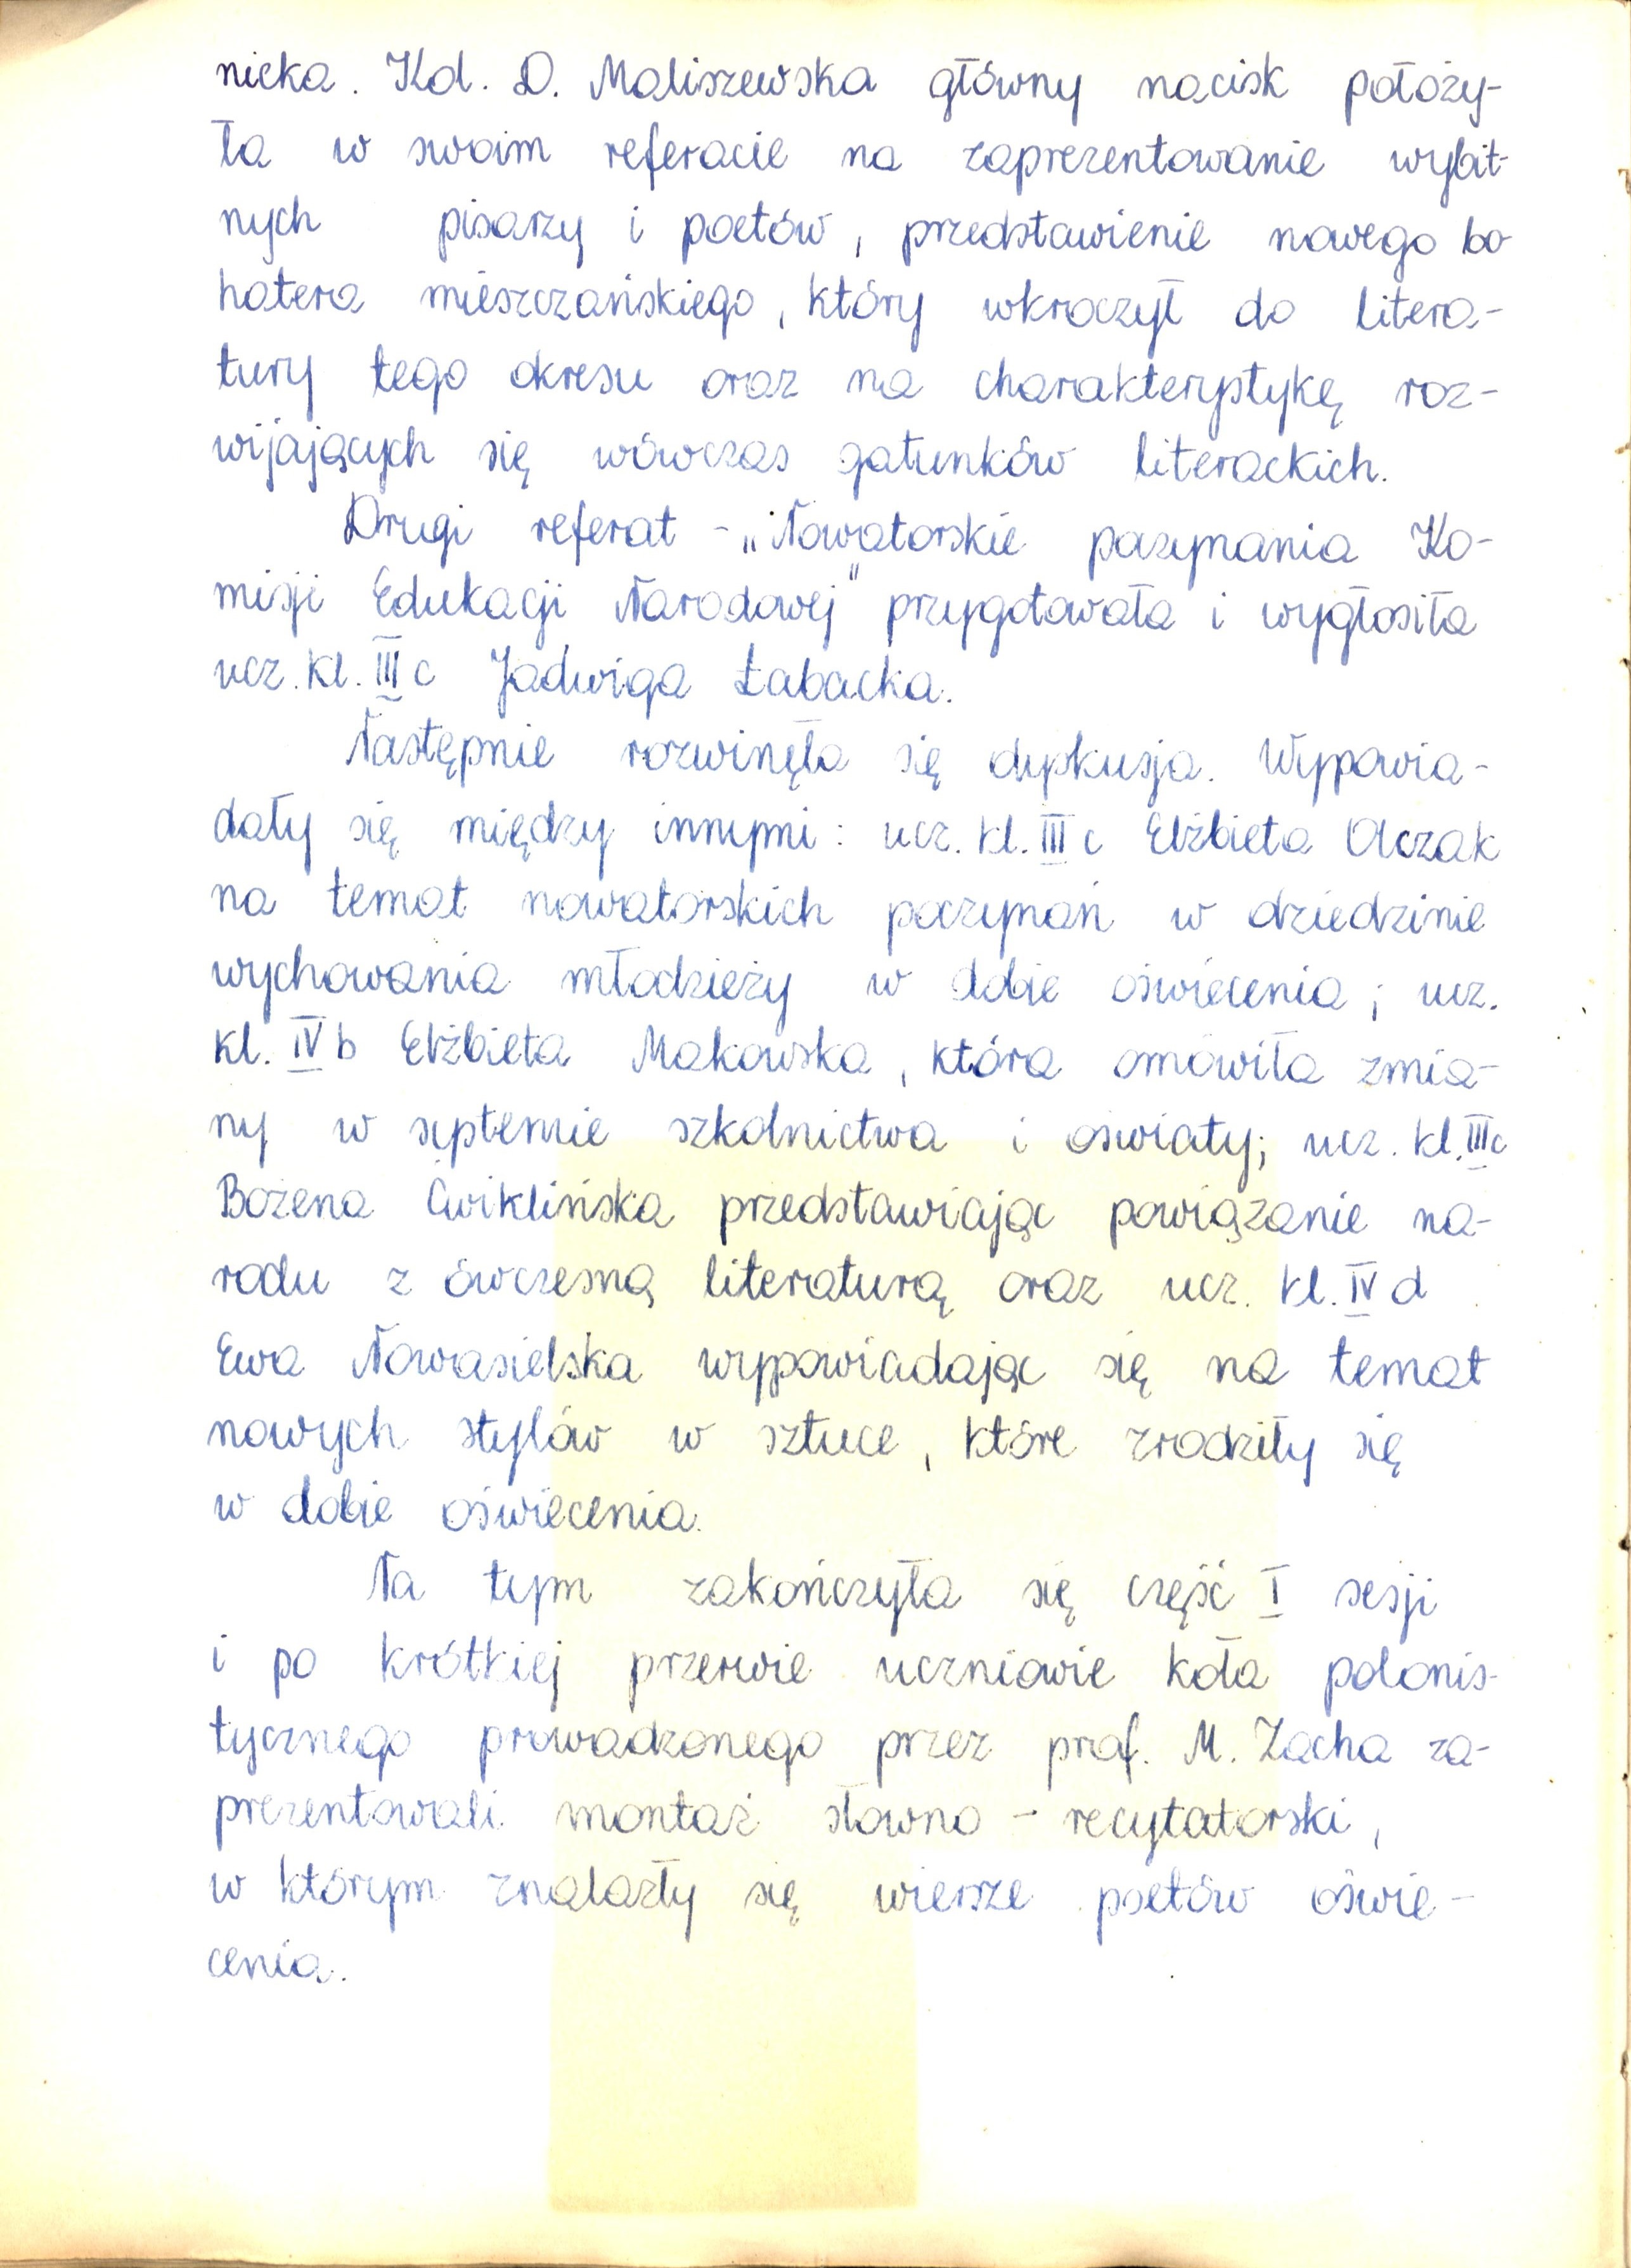 nicka. Kol. D. Maliszewska główny nacisk położy-
ła w swoim referacie na zaprezentowanie wybit-
nych pisarzy i poetów, przedstawienie nowego bo-
hatera mieszczańskiego, który wkroczył do litera-
tury tego okresu oraz na charakterystykę roz-
wijających się wówczas gatunków literackich.
Drugi referat - „Nowatorskie poczynania Ko-
misji Edukacji Narodowej" przygotowała i wygłosiła
ucz. kl. III c Jadwiga Łabacka.
Następnie rozwinęła się dyskusja. Wypowia-
dały się między innymi: ucz. kl. III c Elżbieta Olczak
na temat nowatorskich poczynań w dziedzinie
wychowania młodzieży w dobie oświecenia; ucz.
kl. IV b Elżbieta Makowska, która omówiła zmia-
ny w systemie szkolnictwa i oświaty; ucz. kl. III c
Bożena Ćwiklińska przedstawiając powiązanie na-
rodu z ówczesną literaturą oraz ucz. kl. IV d
Ewa Nowosielska wypowiadając się na temat
nowych stylów w sztuce, które zrodziły się
w dobie oświecenia.
Na tym zakończyła się część I sesji
i po krótkiej przerwie uczniowie koła polonis-
tycznego prowadzonego przez prof. M. Zacha za-
prezentowali montaż słowno - recytatorski,
w którym znalazły się wiersze poetów oświe-
cenia.